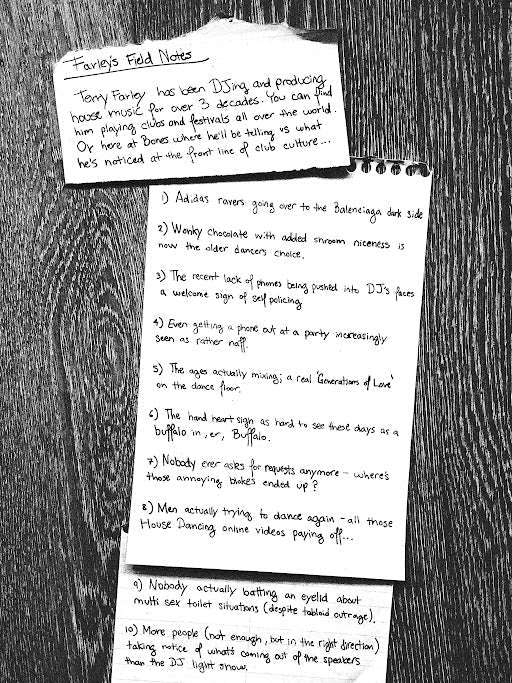 Farley's Field Notes
Terry Farley has been DJing and producing
house music for over 3 decades. You can find
him playing clubs and festivals all over the world.
Or here at Bones where he'll be telling us what
he's noticed at the front line of club culture...
1) Adidas ravers going over to the Balenciaga dark side
2) Wonky chocolate with added shroom niceness is
now the older dancers choice.
3) The recent lack of phones being pushed into DJ's faces
a welcome sign of self policing
4) Even getting a phone out at a party increasingly
seen as rather naff.
5) The ages actually mixing; a real 'Generations of Love'
on the dance floor.
6) The hand heart sign as hard to see these days as a
buffalo in, er, Buffalo.
7) Nobody ever asks for requests anymore - where's
those annoying blokes ended up?
8) Men actually trying to dance again - all those
House Dancing online videos paying off...
9) Nobody actually batting an eyelid about
multi sex toilet situations (despite tabloid outrage).
10) More people (not enough, but in the right direction)
taking notice of what's coming out of the speakers
than the DJ light show.